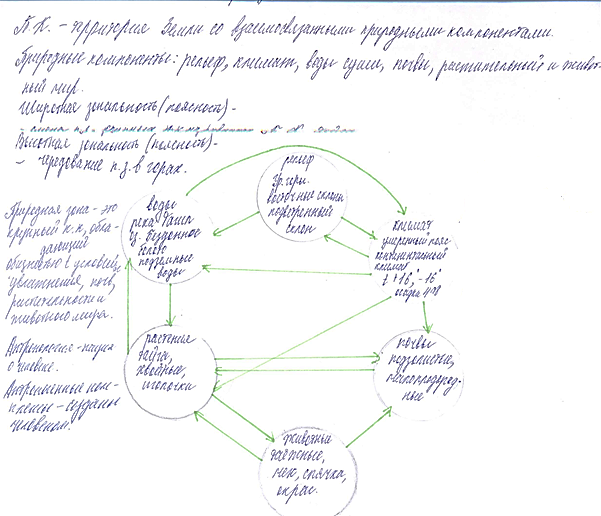 П.К. - территория Земли со взаимосвязанными природными компонентами.
Природные компоненты: рельеф, климат, воды суши, почвы, растительный и живот-
ный мир.
Широтная зональность (поясность) -
- смена п.з.
Высотная зональность (поясность) -
- чередование п.з. в горах.
Природная зона - это
крупный п.к., обла-
дающий
общностью условий
увлажнения, почв,
растительности и
животного мира.
Антропология - наука
о человеке.
Антропогенные ком-
плексы - созданы
человеком.
рельеф
Ур. горы.
восточные склоны
склон
воды
река
болото
подземные
воды
климат
умеренный пояс
континентальный
климат
t +16°, -16°
осадки
растения
тайга,
хвойные,
иголочки
почвы
подзолистые,
малоплодород-
ные
животные
таёжные,
мех, спячка,
окрас.